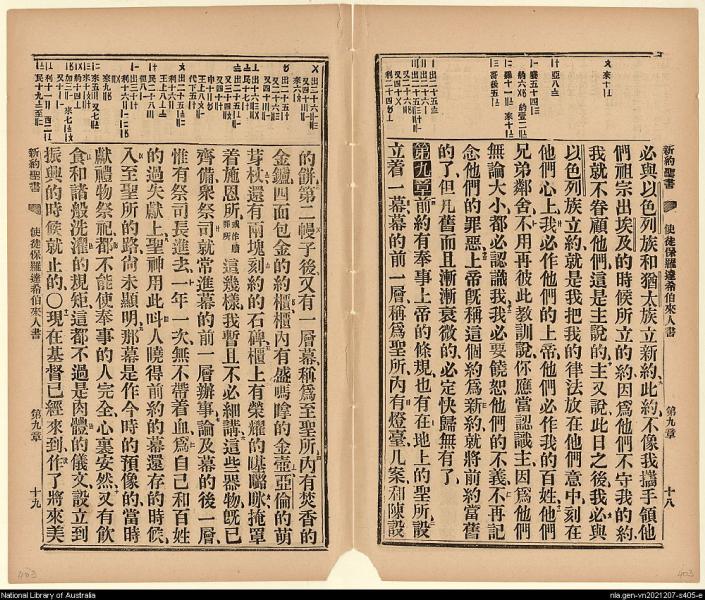 新約聖書
使徒保羅達希伯來人書
第九章
十八
必與以色列族和猶太族立新約此約不像我攜手領他
們祖宗出埃及的時候所立的約因爲他們不守我的約
我就不眷顧他們這是主說的主又說此日之後我必與
以色列族立約就是我把我的律法放在他們意中刻在
他們心上我必作他們的上帝他們必作我的百姓他們
兄弟鄰舍不用再彼此教訓說你應當認識主因爲他們
無論大小都必認識我我必要饒恕他們的不義不再記
念他們的罪惡上帝旣稱這個約爲新約就將前約當舊
的了但凡舊而且漸漸衰微的必定快歸無有了
第九章前約有奉事上帝的條規也有在地上的聖所設
立着一幕幕的前一層稱爲聖所內有燈臺几案和陳設
的餅第二幔子後又有一層幕稱爲至聖所內有焚香的
金鑪四面包金的約櫃櫃內有盛嗎嗱的金壺亞倫的萌
芽杖還有兩塊刻約的石碑櫃上有榮耀的𠼻𡃤𠲖掩罩
着施恩所或作贖罪所這幾樣我暫且不必細講這些器物旣已
齊備衆祭司就常進幕的前一層辦事論及幕的後一層
惟有祭司長進去一年一次無不帶着血爲自己和百姓
的過失獻上聖神用此呌人曉得前約的幕還存的時候
入至聖所的路尙未顯明那幕是作今時的預像的當時
獻禮物祭祀都不能使奉事的人完全心裏安然又有飲
食和諸般洗濯的規矩這都不過是肉體的儀文設立到
振興的時候就止的○現在基督已經來到作了將來美
新約聖書
使徒保羅達希伯來人書
第九章
十九
403
403
National Library of Australia
nla.gen-vn2021207-s405-e